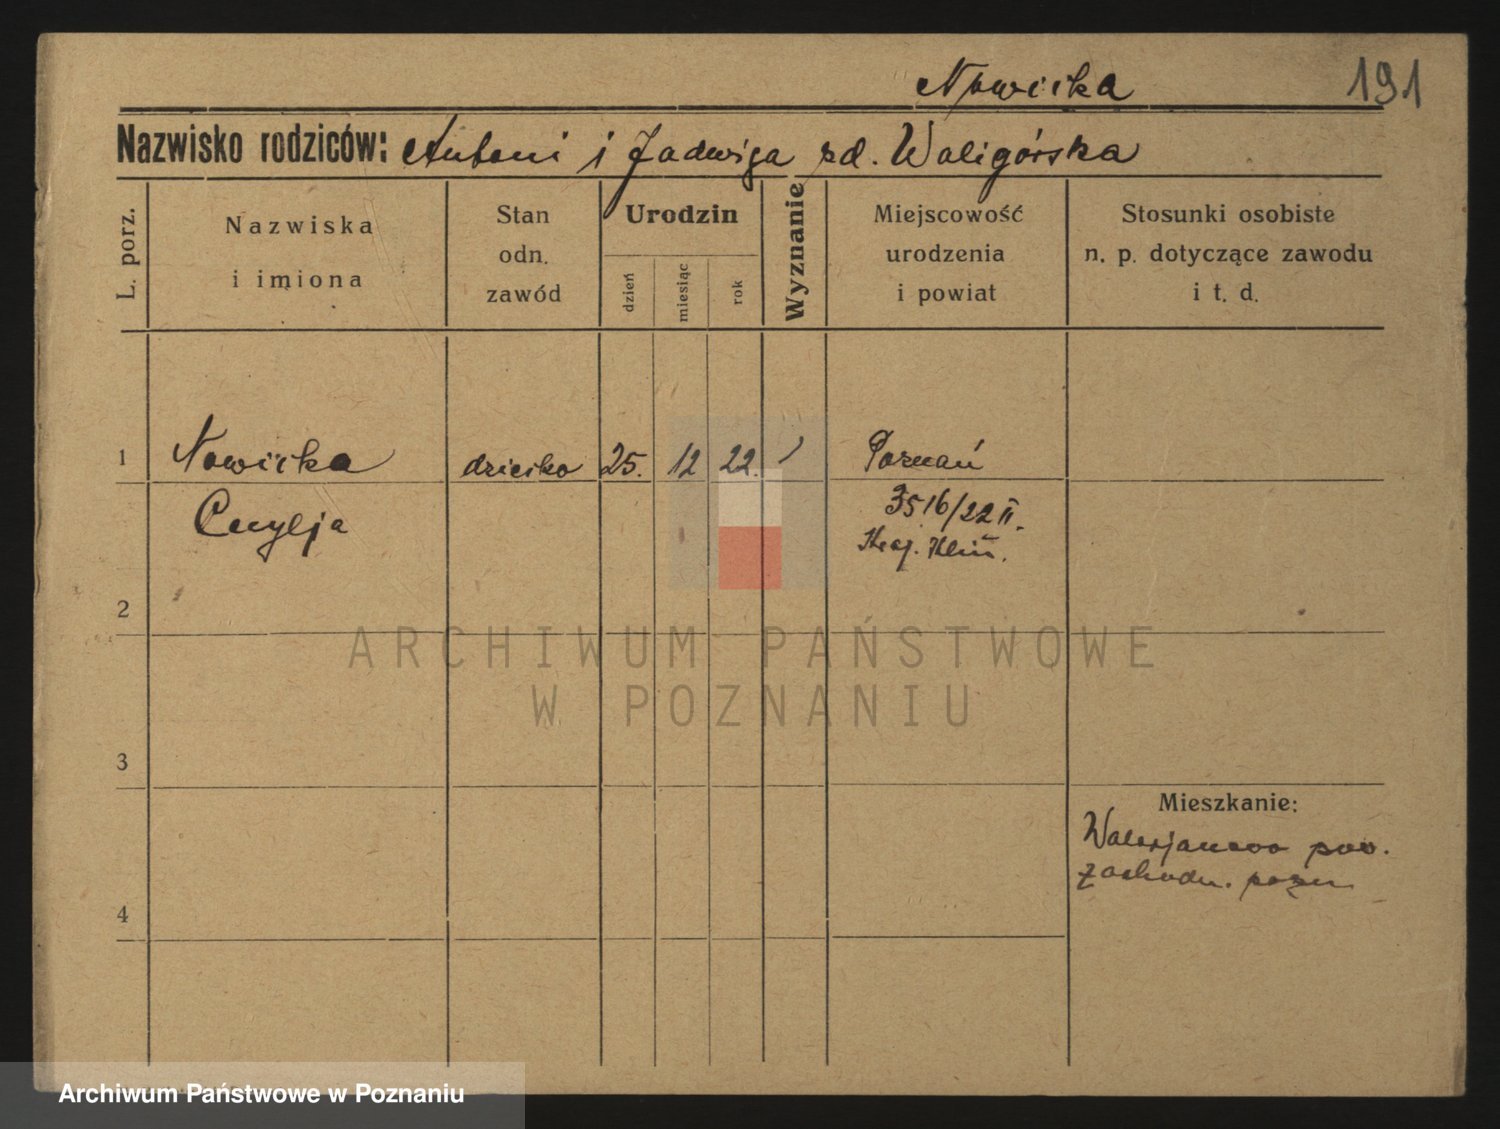 Nowicka
191
Nazwisko rodziców: Antoni i Jadwiga zd. Waligórska
L. porz.
Nazwiska
i imiona
Stan
odn.
zawód
Urodzin
dzień
miesiąc
rok
Wyznanie
Miejscowość
urodzenia
i powiat
Stosunki osobiste
n. p. dotyczące zawodu
i t. d.
1 Nowicka dziecko 25. 12 22. Poznań
Cecylja 3516/22 II.
2
3
Mieszkanie:
Walerjanowo pow.
zachodn. pozn
4
ARCHIWUM PAŃSTWOWE
W POZNANIU
Archiwum Państwowe w Poznaniu